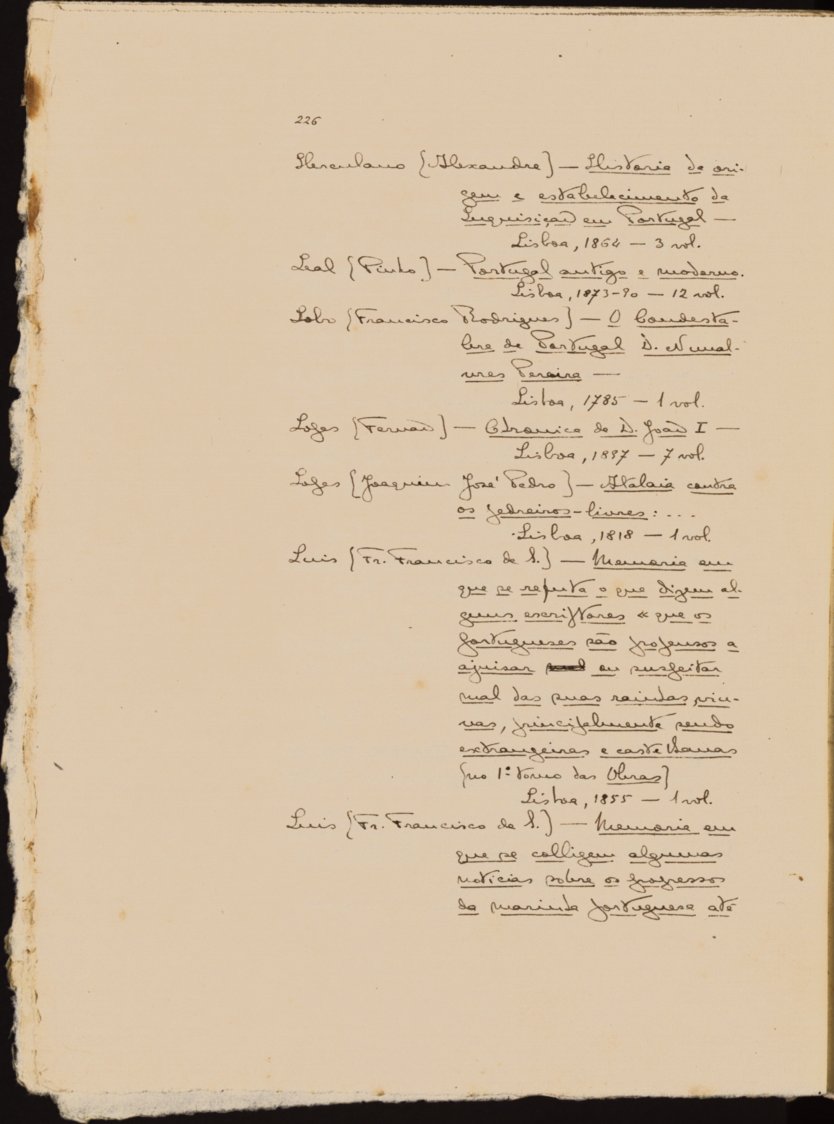 226
Herculano [Alexandre] — Historia da ori-
gem e estabelecimento da
Inquisição em Portugal —
Lisboa, 1864 — 3 vol.
Leal [Pinho] — Portugal antigo e moderno.
Lisboa, 1873-90 — 12 vol.
Lobo [Francisco Rodrigues] — O Condesta-
bre de Portugal D. Nunal-
vres Pereira —
Lisboa, 1785 — 1 vol.
Lopes [Fernaõ] — Chronica de D. João I —
Lisboa, 1897 — 7 vol.
Lopes [Joaquim José Pedro] — Atalaia contra
os pedreiros-livres: ...
Lisboa, 1818 — 1 vol.
Luis [Fr. Francisco de S.] — Memoria em
que se refuta o que dizem al-
guns escriptores « que os
portugueses são propensos a
ajuisar ou suspeitar
mal das suas rainhas viu-
vas, principalmente sendo
extrangeiras e castelhanas
[no 1º tomo das Obras]
Lisboa, 1855 — 1 vol.
Luis [Fr. Francisco de S.] — Memoria em
que se colligem algumas
noticias sobre os progressos
da marinha portuguesa até